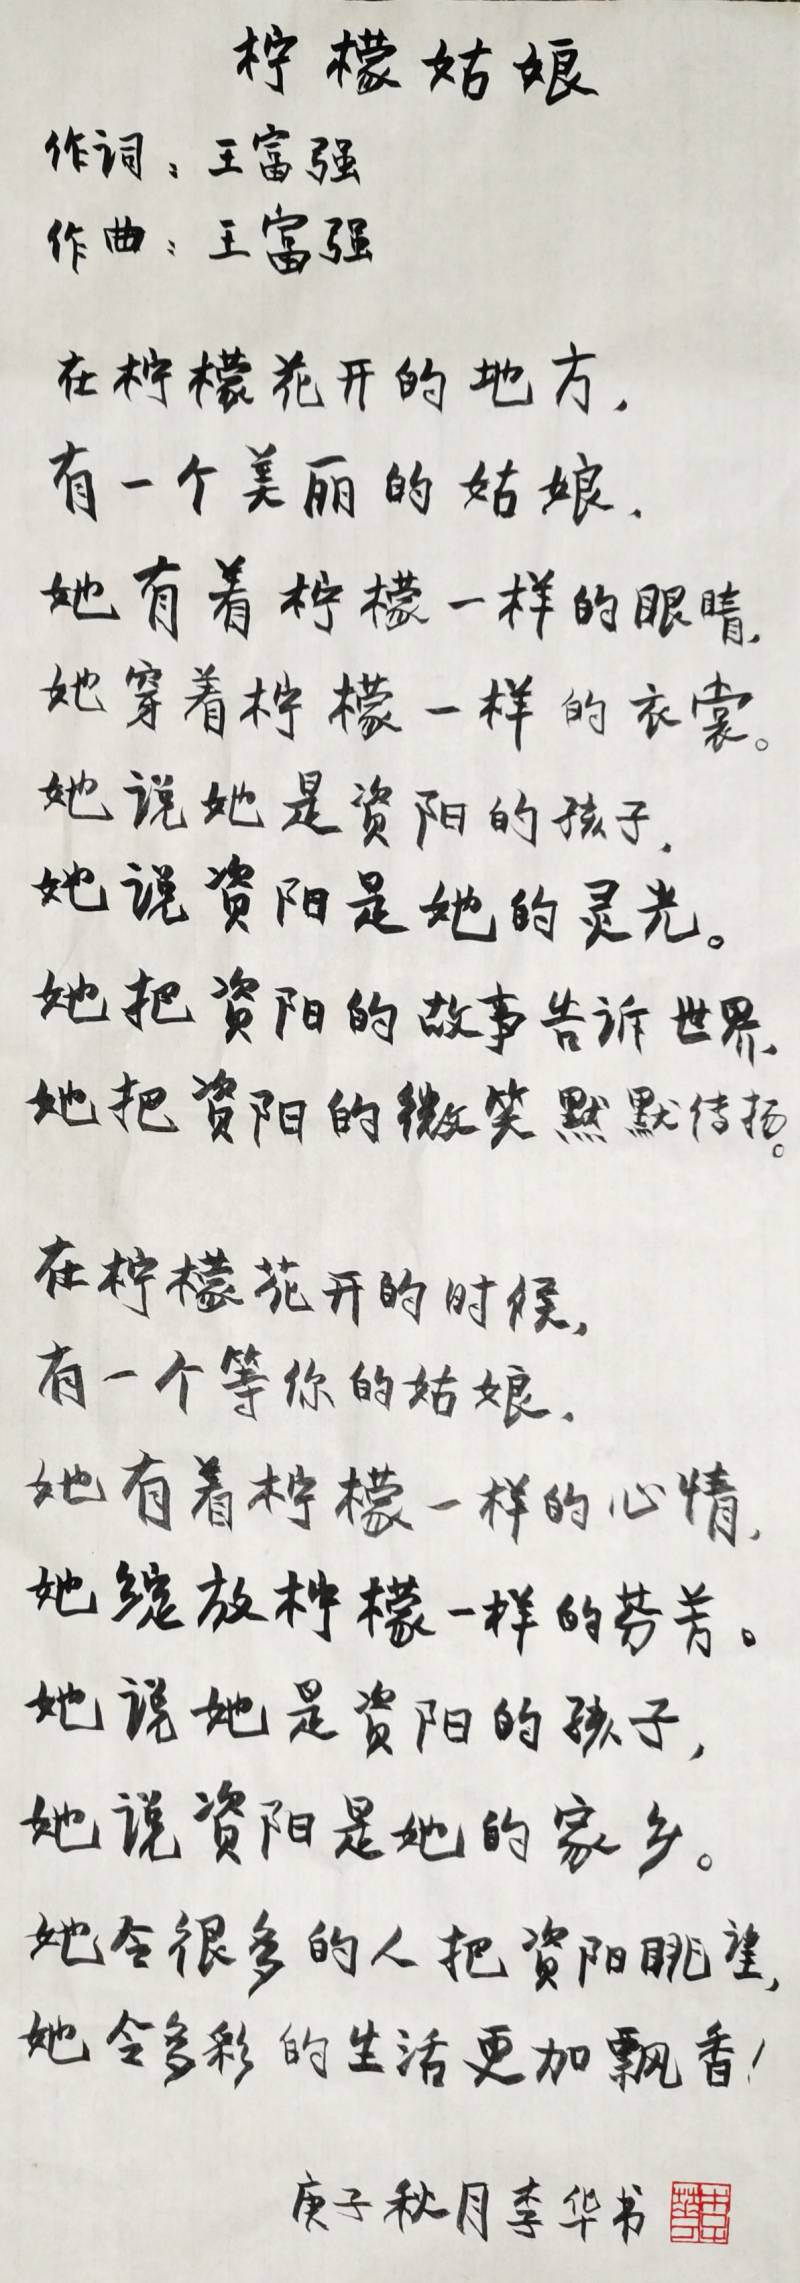 柠檬姑娘
作词：王富强
作曲：王富强
在柠檬花开的地方，
有一个美丽的姑娘，
她有着柠檬一样的眼睛，
她穿着柠檬一样的衣裳。
她说她是资阳的孩子，
她说资阳是她的灵光。
她把资阳的故事告诉世界，
她把资阳的微笑默默传扬。
在柠檬花开的时候，
有一个等你的姑娘，
她有着柠檬一样的心情，
她绽放柠檬一样的芬芳。
她说她是资阳的孩子，
她说资阳是她的家乡。
她令很多的人把资阳眺望，
她令多彩的生活更加飘香！
庚子秋月李华书